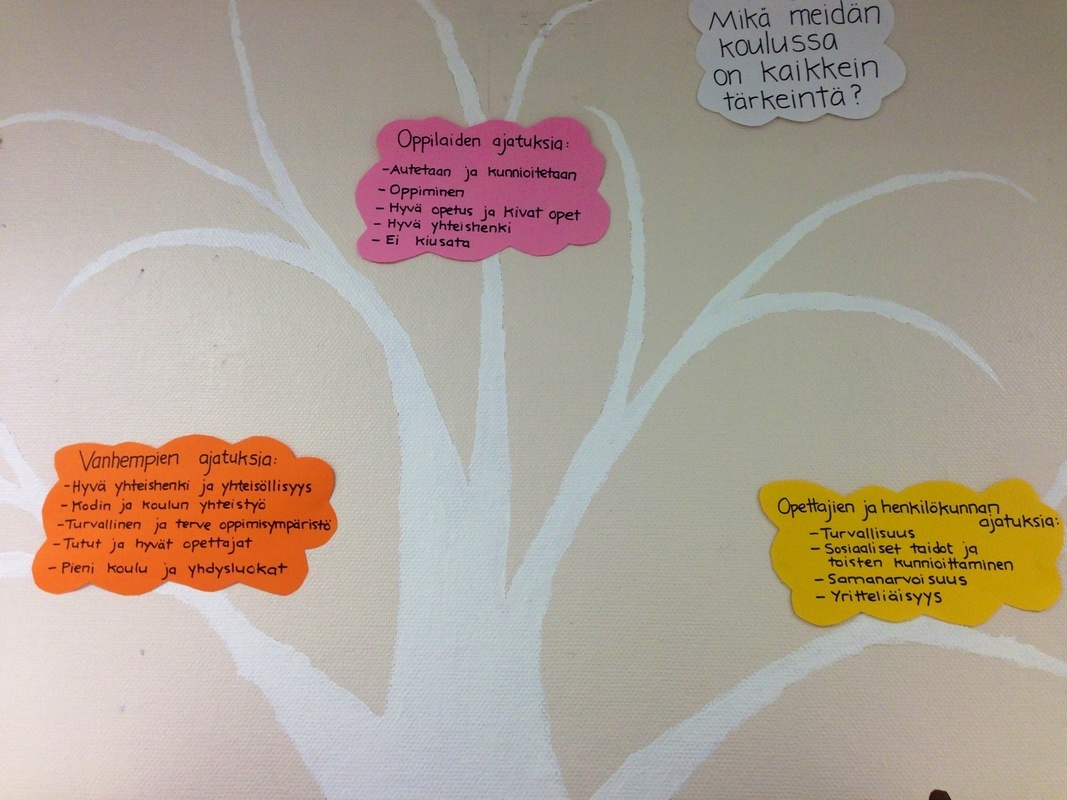 Mikä meidän
koulussa
on kaikkein
tärkeintä?
Oppilaiden ajatuksia:
-Autetaan ja kunnioitetaan
- Oppiminen
- Hyvä opetus ja kivat opet
- Hyvä yhteishenki
- Ei kiusata
Vanhempien ajatuksia:
-Hyvä yhteishenki ja yhteisöllisyys
- Kodin ja koulun yhteistyö
-Turvallinen ja terve oppimisympäristö
-Tutut ja hyvät opettajat
- Pieni koulu ja yhdysluokat
Opettajien ja henkilökunnan
ajatuksia:
-Turvallisuus
- Sosiaaliset taidot ja
toisten kunnioittaminen
- Samanarvoisuus
- Yritteliäisyys